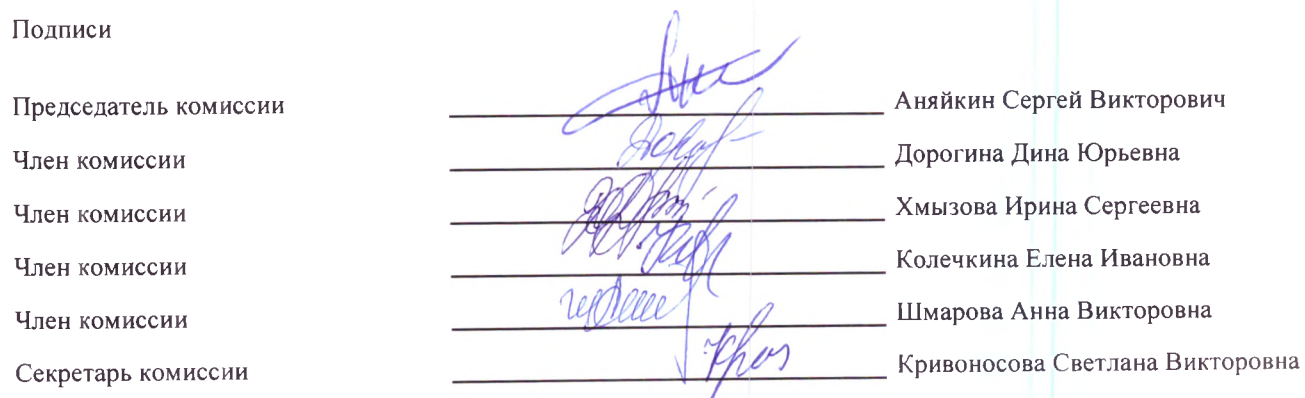 Подписи
Председатель комиссии Аняйкин Сергей Викторович
Член комиссии Дорогина Дина Юрьевна
Член комиссии Хмызова Ирина Сергеевна
Член комиссии Колечкина Елена Ивановна
Член комиссии Шмарова Анна Викторовна
Секретарь комиссии Кривоносова Светлана Викторовна